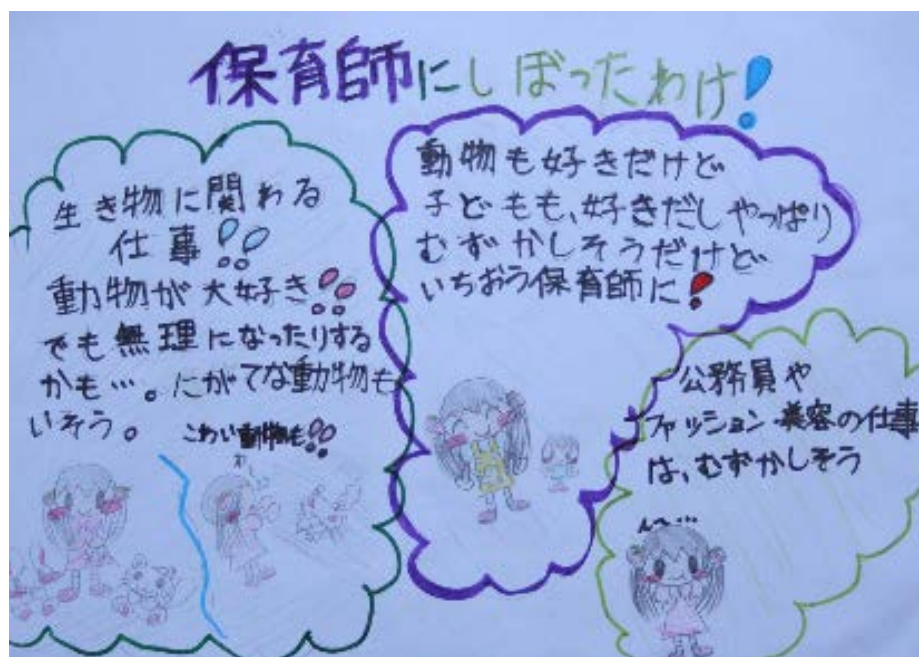 保育師にしぼったわけ!
生き物に関わる
仕事!!
動物が大好き!!
でも無理になったりする
かも…。にがてな動物も
いそう。
こわい動物も!!
動物も好きだけど
子どもも、好きだしやっぱり
むずかしそうだけど
いちおう保育師に!
公務員や
ファッション・美容の仕事
は、むずかしそう